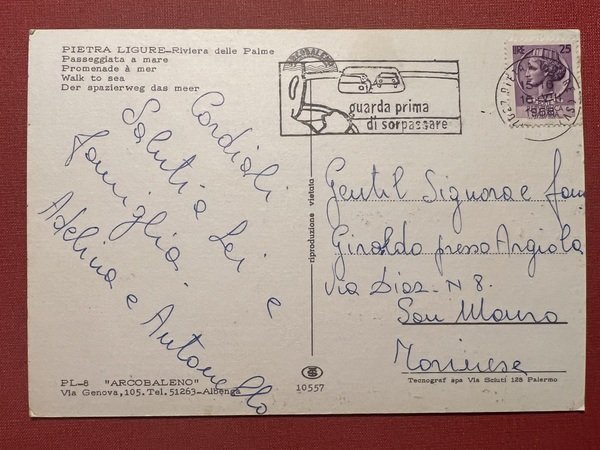 PIETRA LIGURE-Riviera delle Palme
Passeggiata a mare
Promenade à mer
Walk to sea
Der spazierweg das meer
ARCOBALENO
guarda prima
di sorpassare
LIRE 25
1968
Cordiali
Saluti a Lei e
famiglia.
Adelina e Antonello
riproduzione vietata
Gentil Signora e fam
Giraldo presso Argiola
Via Diaz - N 8.
San Mauro
Torinese
PL-8 "ARCOBALENO"
Via Genova, 105. Tel. 51263-Albenga
10557
Tecnograf spa Via Sciuti 128 Palermo